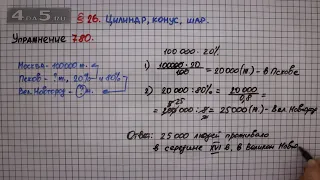 4A5.RU
§ 26. ЦИЛИНДР, КОНУС, ШАР.
Упражнение 780.
Москва - 100000 т.
Псков - ? т., 20%
80%
Вел. Новгород - ? т.
100 000 - 20%
1) 100000 · 20 / 100 = 20 000 (т.) - в Пскове
2) 20 000 : 80% = 20 000 / 0,8 =
= 25 000 (т.) - Вел. Новгород
Ответ: 25 000 людей проживало
в середине XVI в. в Великом Новго